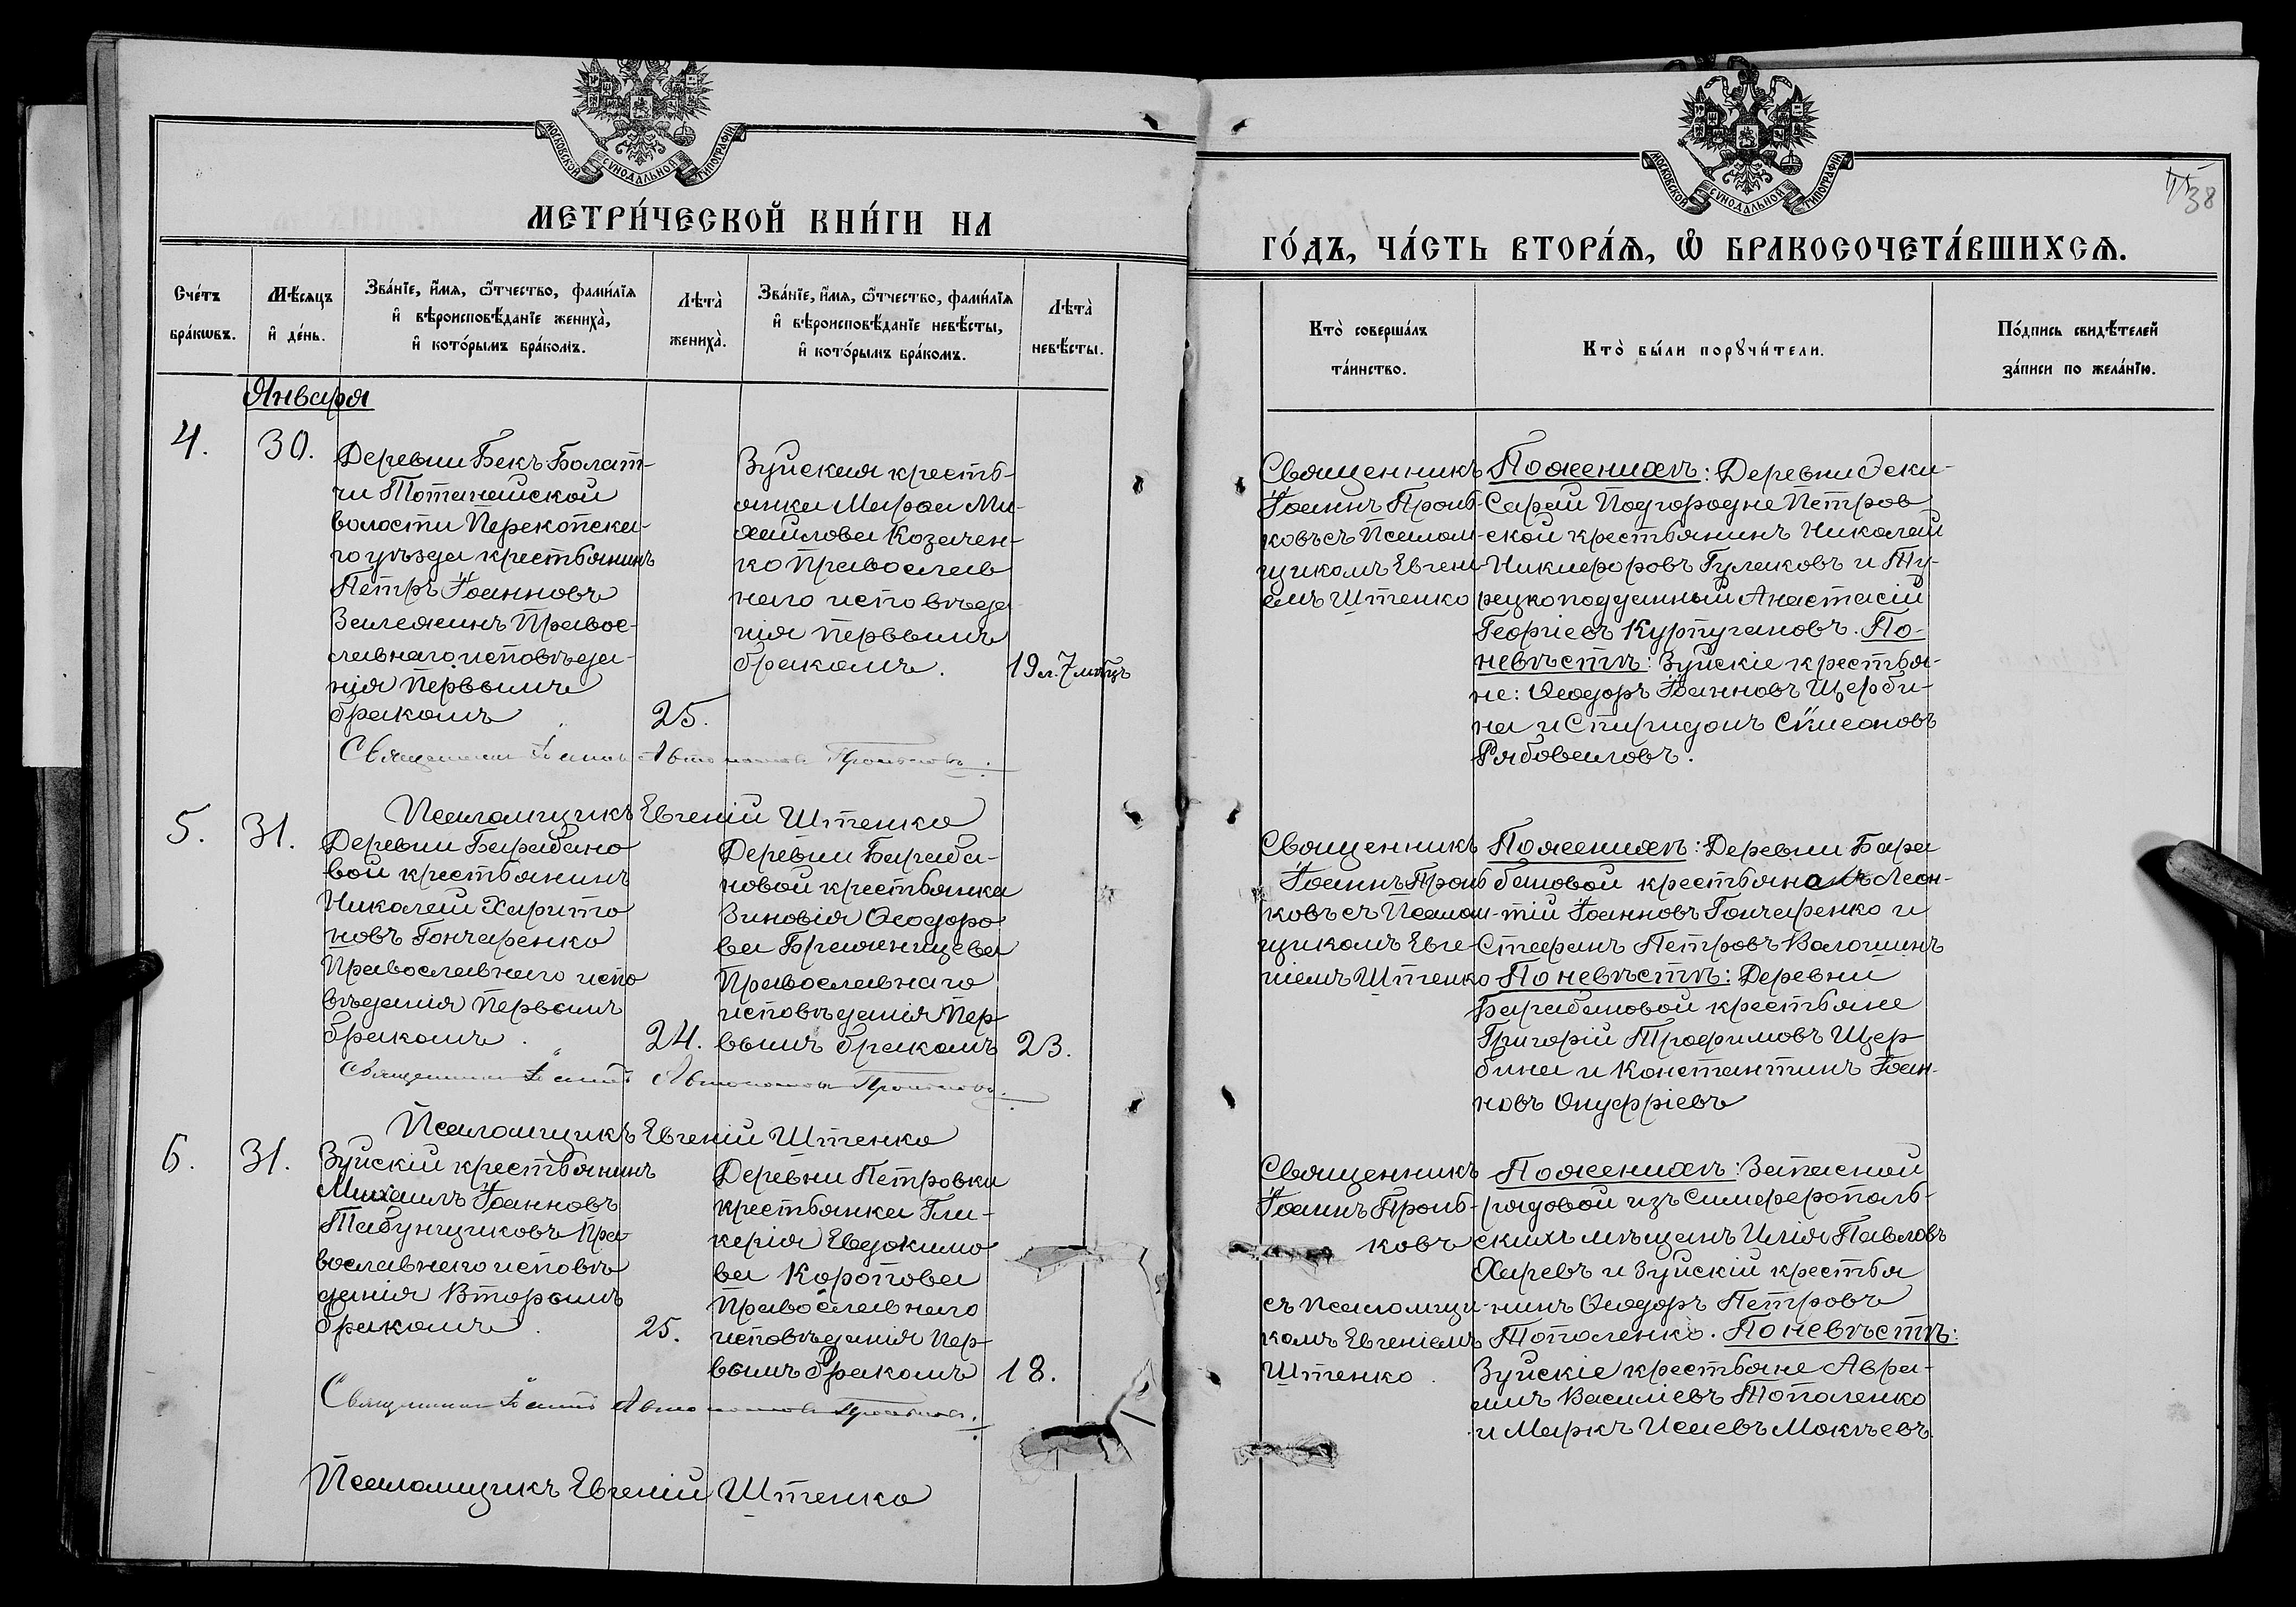 МОСКОВСКОЙ СѴНОДАЛЬНОЙ ТИПОГРАФІИ
МЕТРИ́ЧЕСКОЙ КНИ́ГИ НА
Сче́тъ
бра́кωвъ.
Мѣ́сяцъ
и҆ де́нь.
Зва́нїе, и҆́мѧ, ѻ҆́тчество, фами́лїѧ
и҆ вѣроисповѣ́данїе жениха̀,
и҆ кото́рымъ бра́комъ.
Лѣта̀
жениха̀.
Зва́нїе, и҆́мѧ, ѻ҆́тчество, фами́лїѧ
и҆ вѣроисповѣ́данїе невѣ́сты,
и҆ кото́рымъ бра́комъ.
Лѣта̀
невѣ́сты.
Января
4.
30.
Деревни Бекъ-Болат-
чи Тотанайской
волости Перекопска-
го уѣзда крестьянинъ
Петръ Іоанновъ
Залежинъ Правос-
лавнаго исповѣда-
нія первымъ
бракомъ
25.
Зуйская кресть-
янка Марѳа Ми-
хайлова Козачен-
ко Православ
наго исповѣда
нія первымъ
бракомъ.
19 л. 7 мѣсцъ
Священникъ Іоаннъ Автономовъ Произковъ.
Псаломщикъ Евгеній Штенко
5.
31.
Деревни Барабано
вой крестьянинъ
Николай Харито
новъ Гончаренко
Православнаго испо
вѣданія первымъ
бракомъ.
24.
Деревни Бараба-
новой крестьянка
Зиновія Ѳеодоро
ва Браженицева
Православнаго
исповѣданія Пер
вымъ бракомъ
23.
Священникъ Іоаннъ Автономовъ
Псаломщикъ Евгеній Штенко
6.
31.
Зуйскій крестьянинъ
Михаилъ Іоанновъ
Табунщиковъ Пра
вославнаго исповѣ
данія Вторымъ
бракомъ.
25.
Деревни Петровки
крестьянка Гли-
керія Евдокимо
ва Коротова
Православнаго
исповѣданія Пер
вымъ бракомъ
18.
Священникъ Іоаннъ Автономовъ
Псаломщикъ Евгеній Штенко
МОСКОВСКОЙ СѴНОДАЛЬНОЙ ТИПОГРАФІИ
38
ГО́ДЪ, ЧА́СТЬ ВТОРА́Ѧ, Ѽ БРАКОСОЧЕТА́ВШИХСѦ.
Кто̀ соверша́лъ
та́инство.
Кто̀ бы́ли порꙋчи́тели.
По́дпись свидѣ́телей
за́писи по жела́нїю.
Священникъ
Іоаннъ Проиь-
ковъ съ Псалом-
щикомъ Евгені-
емъ Штенко
По женихѣ: Деревни Эски-
Сарай Подгородне Петров
ской крестьянинъ Николай
Никифоровъ Гулаковъ и Ту-
рецкоподданный Анастасій
Георгіевъ Куртугановъ. По-
невѣстѣ: Зуйскіе крестья-
не: Ѳеодоръ Іоанновъ Щерби-
на и Спиридонъ Симеоновъ
Рябоваловъ.
Священникъ
Іоаннъ Проиь
ковъ съ Псалом-
щикомъ Евге-
ніемъ Штенко
По женихѣ: Деревни Бара
бановой крестьянинъ Леон-
тій Іоанновъ Гончаренко и
Стефанъ Петровъ Валошинъ
По невѣстѣ: Деревни
Барабановой крестьяне
Григорій Трофимовъ Щер
бина и Константинъ Іоан-
новъ Онуфріевъ
Священникъ
Іоаннъ Проиь-
ковъ
съ псаломщи-
комъ Евгеніемъ
Штенко.
По женихѣ: Запасной
рядовой изъ Симферополь-
скихъ мѣщанъ Илія Павловъ
Харевъ и Зуйскій крестья
нинъ Ѳеодоръ Петровъ
Тополенко. По невѣстѣ:
Зуйскіе крестьяне Авра-
амъ Василіевъ Тополенко
и Маркъ Исаевъ Мокѣевъ.